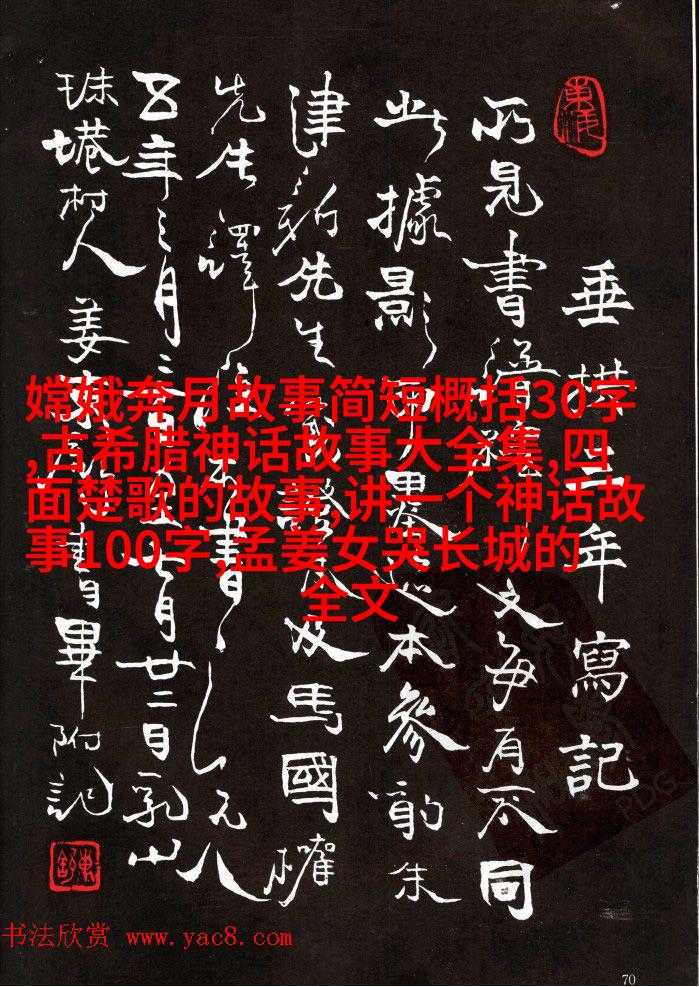 垂拱三年寫記
所見書譜文每有不同
此據影印墨迹本參酌朱
先生及馬國權
先生譯本書元人
年三月七月廿二日乳山
珠塔村人姜書畢附記
嫦娥奔月故事简短概括30字
,古希腊神话故事大全集,四
面楚歌的故事,讲一个神话故
事100字,孟姜女哭长城的
全文
书法欣赏 www.yac8.com
PDG
70